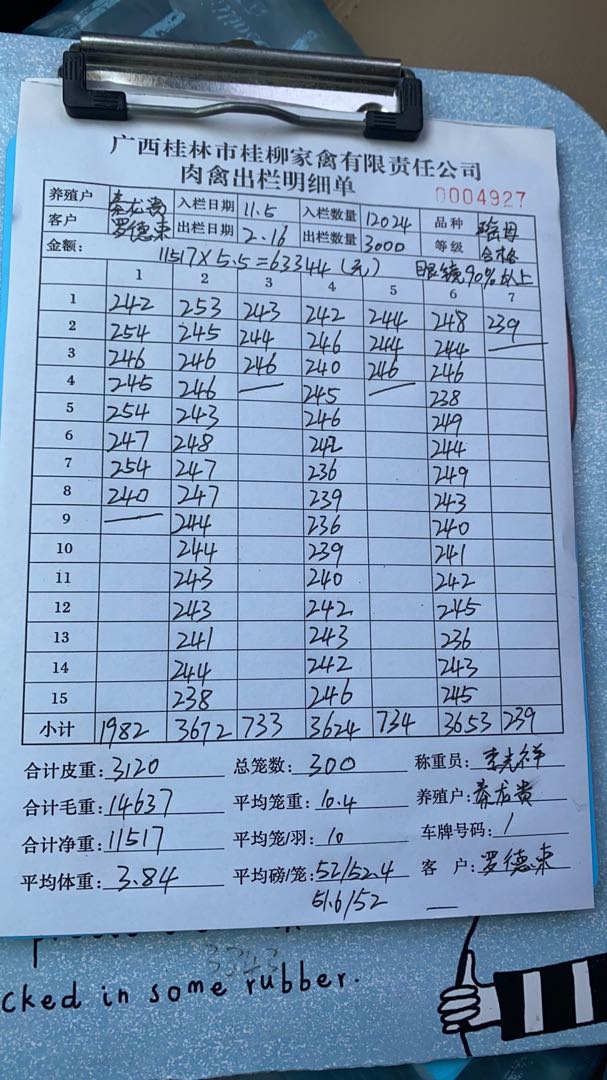 广西桂林市桂柳家禽有限责任公司
肉禽出栏明细单
0004927
养殖户 秦龙贵 入栏日期 11.5 入栏数量 12024 品种
客户 罗德束 出栏日期 2.16 出栏数量 3000 等级 合格
金额: 11517×5.5=63344(元) 眼镜90%以上
1 2 3 4 5 6 7
1 242 253 243 242 244 248 239
2 254 245 244 246 244 244
3 246 246 246 240 246 246
4 245 246 245 238
5 254 243 246 249
6 247 248 242 244
7 254 247 236 249
8 240 247 239 243
9 244 236 240
10 244 239 241
11 243 240 242
12 243 242 245
13 241 243 236
14 244 242 243
15 238 246 245
小计 1982 3672 733 3624 734 3653 239
合计皮重: 3120 总笼数: 300 称重员: 李光祥
合计毛重: 14637 平均笼重: 10.4 养殖户: 秦龙贵
合计净重: 11517 平均笼/羽: 10 车牌号码: /
平均体重: 3.84 平均磅/笼: 52/52.4 客 户: 罗德束
51.6/52
cked in some rubber.